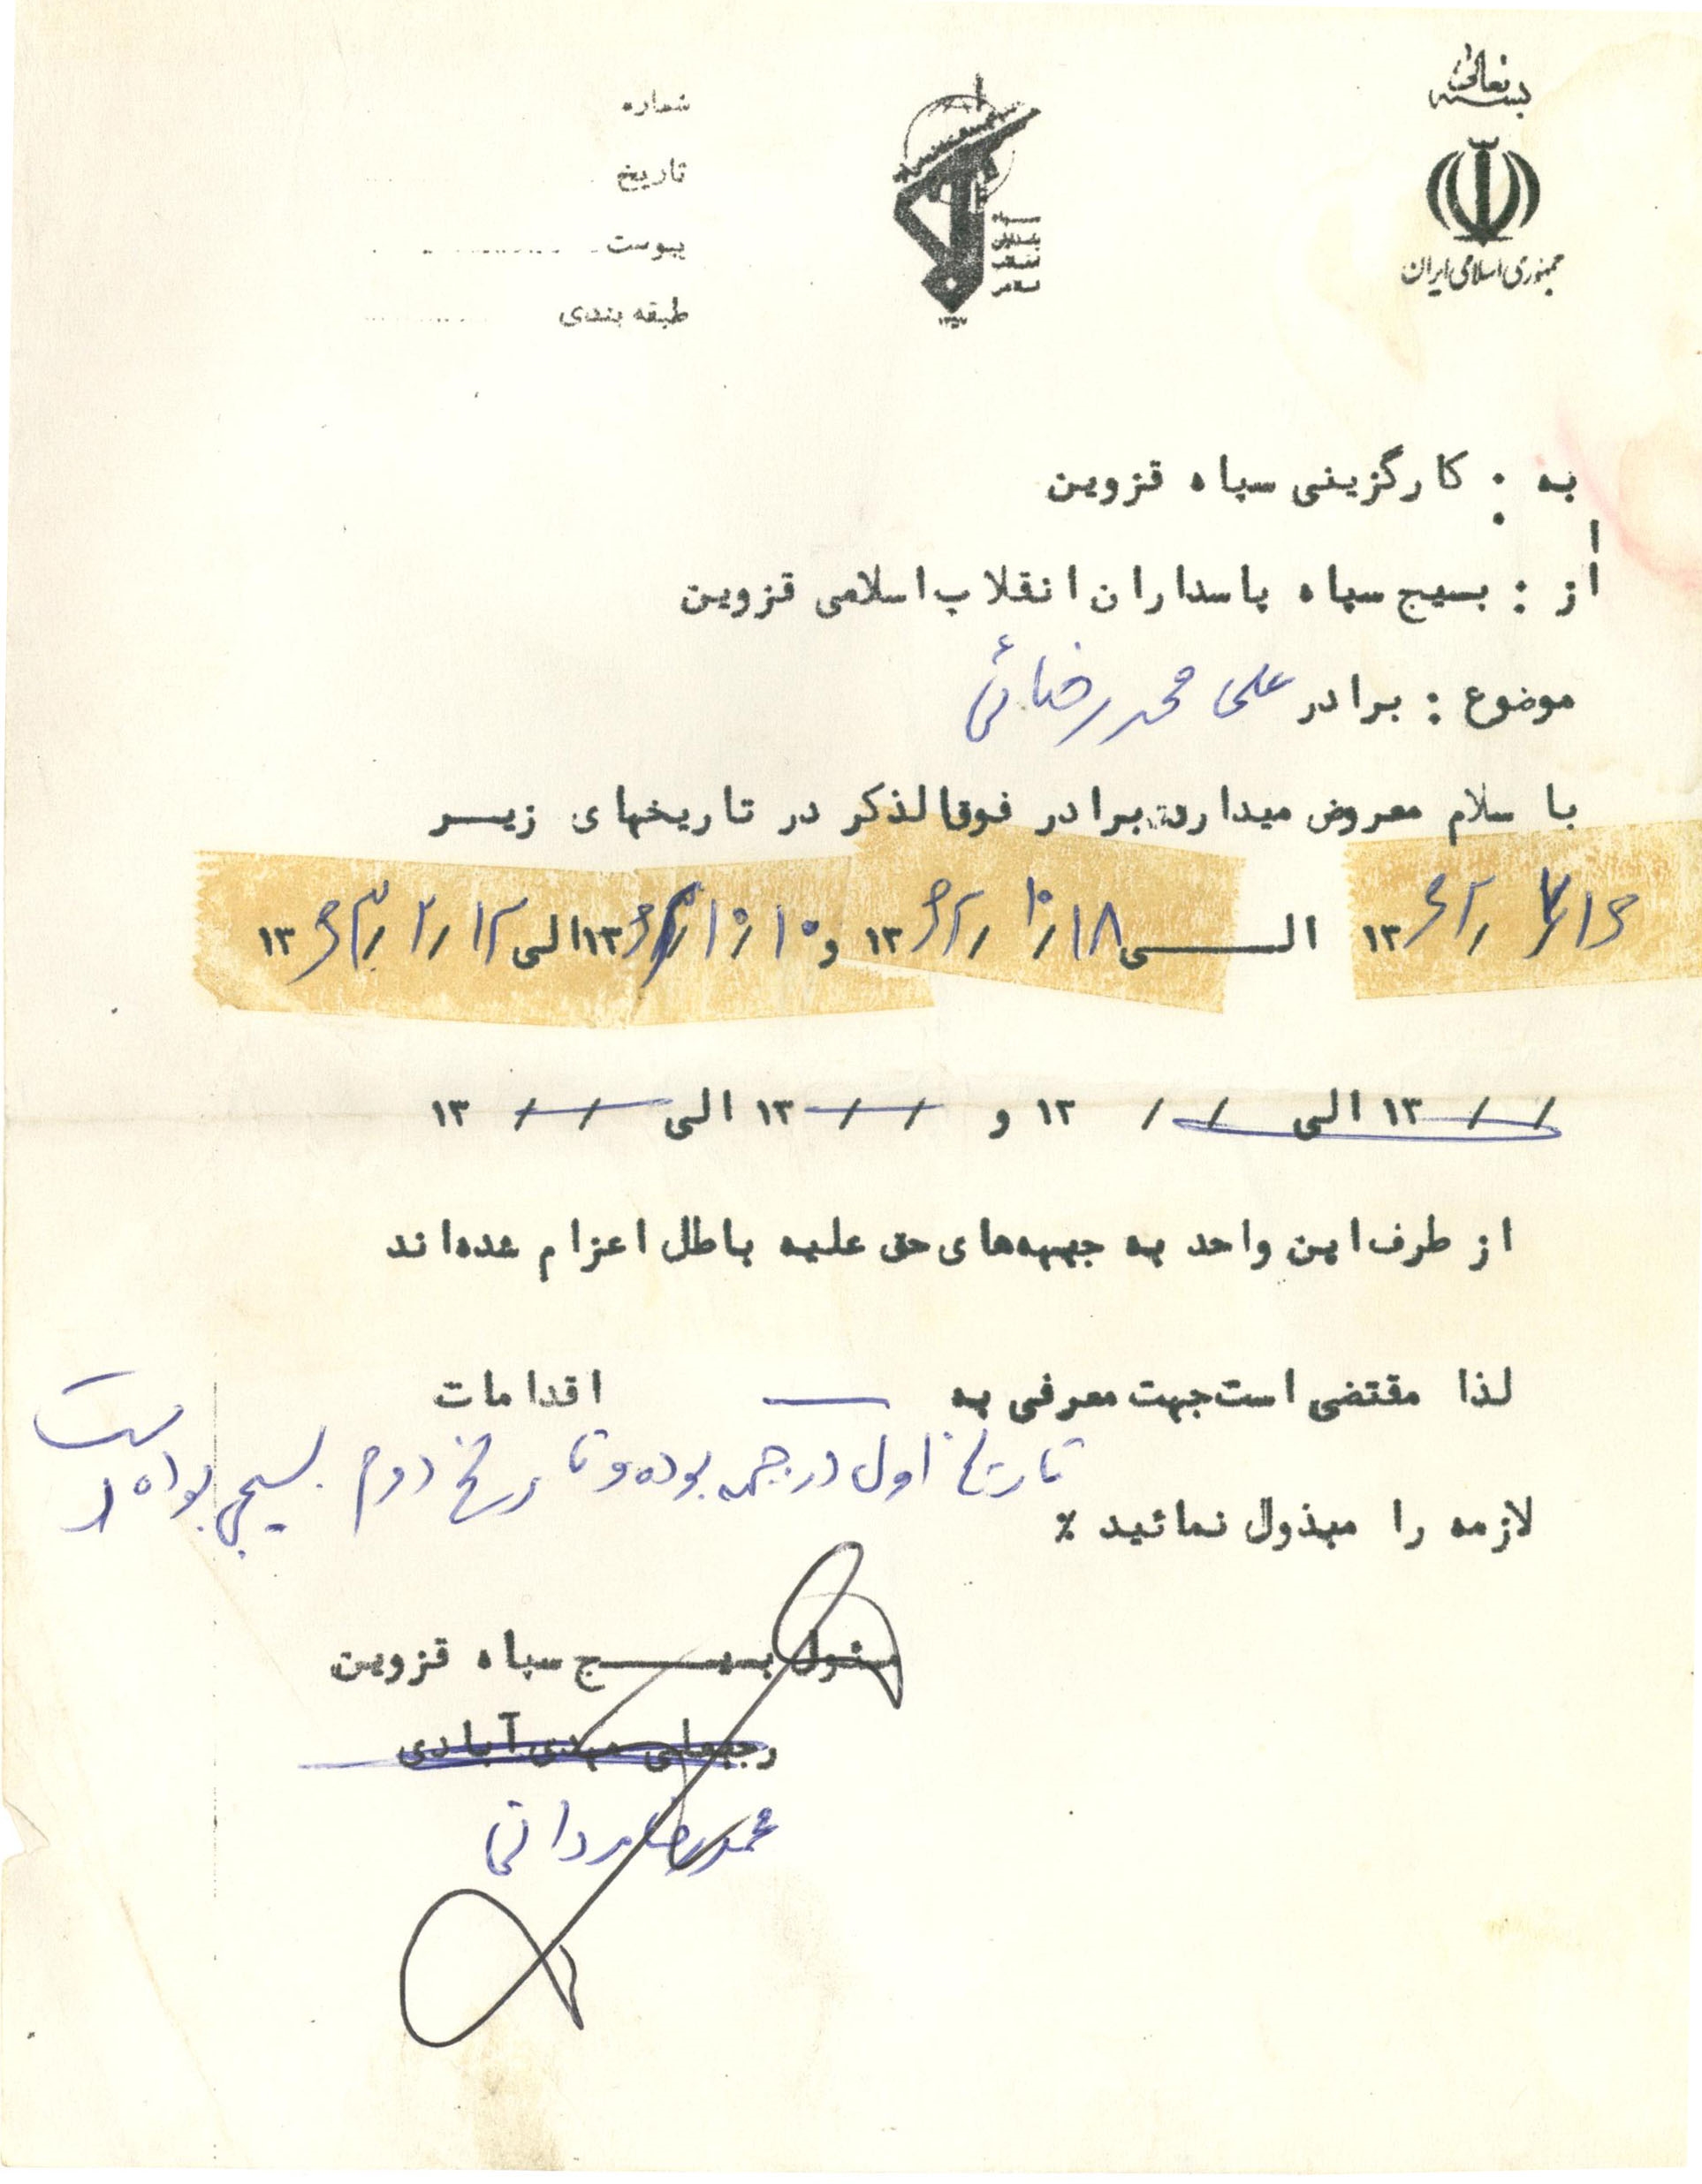 بسمه تعالی
جمهوری اسلامی ایران
سپاه
پاسداران
انقلاب
اسلامی
۱۳۵۷
شماره
تاریخ
پیوست
طبقه بندی
به : کارگزینی سپاه قزوین
از : بسیج سپاه پاسداران انقلاب اسلامی قزوین
موضوع : برادر علی محمد رضائی
با سلام معروض میدارد برادر فوقالذکر در تاریخهای زیر
۱۳۶۲/ الی ۱۸/۱۰/۱۳۶۲ و ۱۰/۱۰/۱۳ الی ۱۲/۲/۱۳
/ / ۱۳ الی / / ۱۳ و / / ۱۳ الی / / ۱۳
از طرف این واحد به جبهه‌های حق علیه باطل اعزام شده‌اند
لذا مقتضی است جهت معرفی به اقدامات
تاریخ اول در جبهه بوده و تاریخ دوم بسیجی بوده است
لازمه را مبذول نمائید ٪
مسئول بسیج سپاه قزوین
رجبعلی مهدی آبادی
محمدرضا مردانی